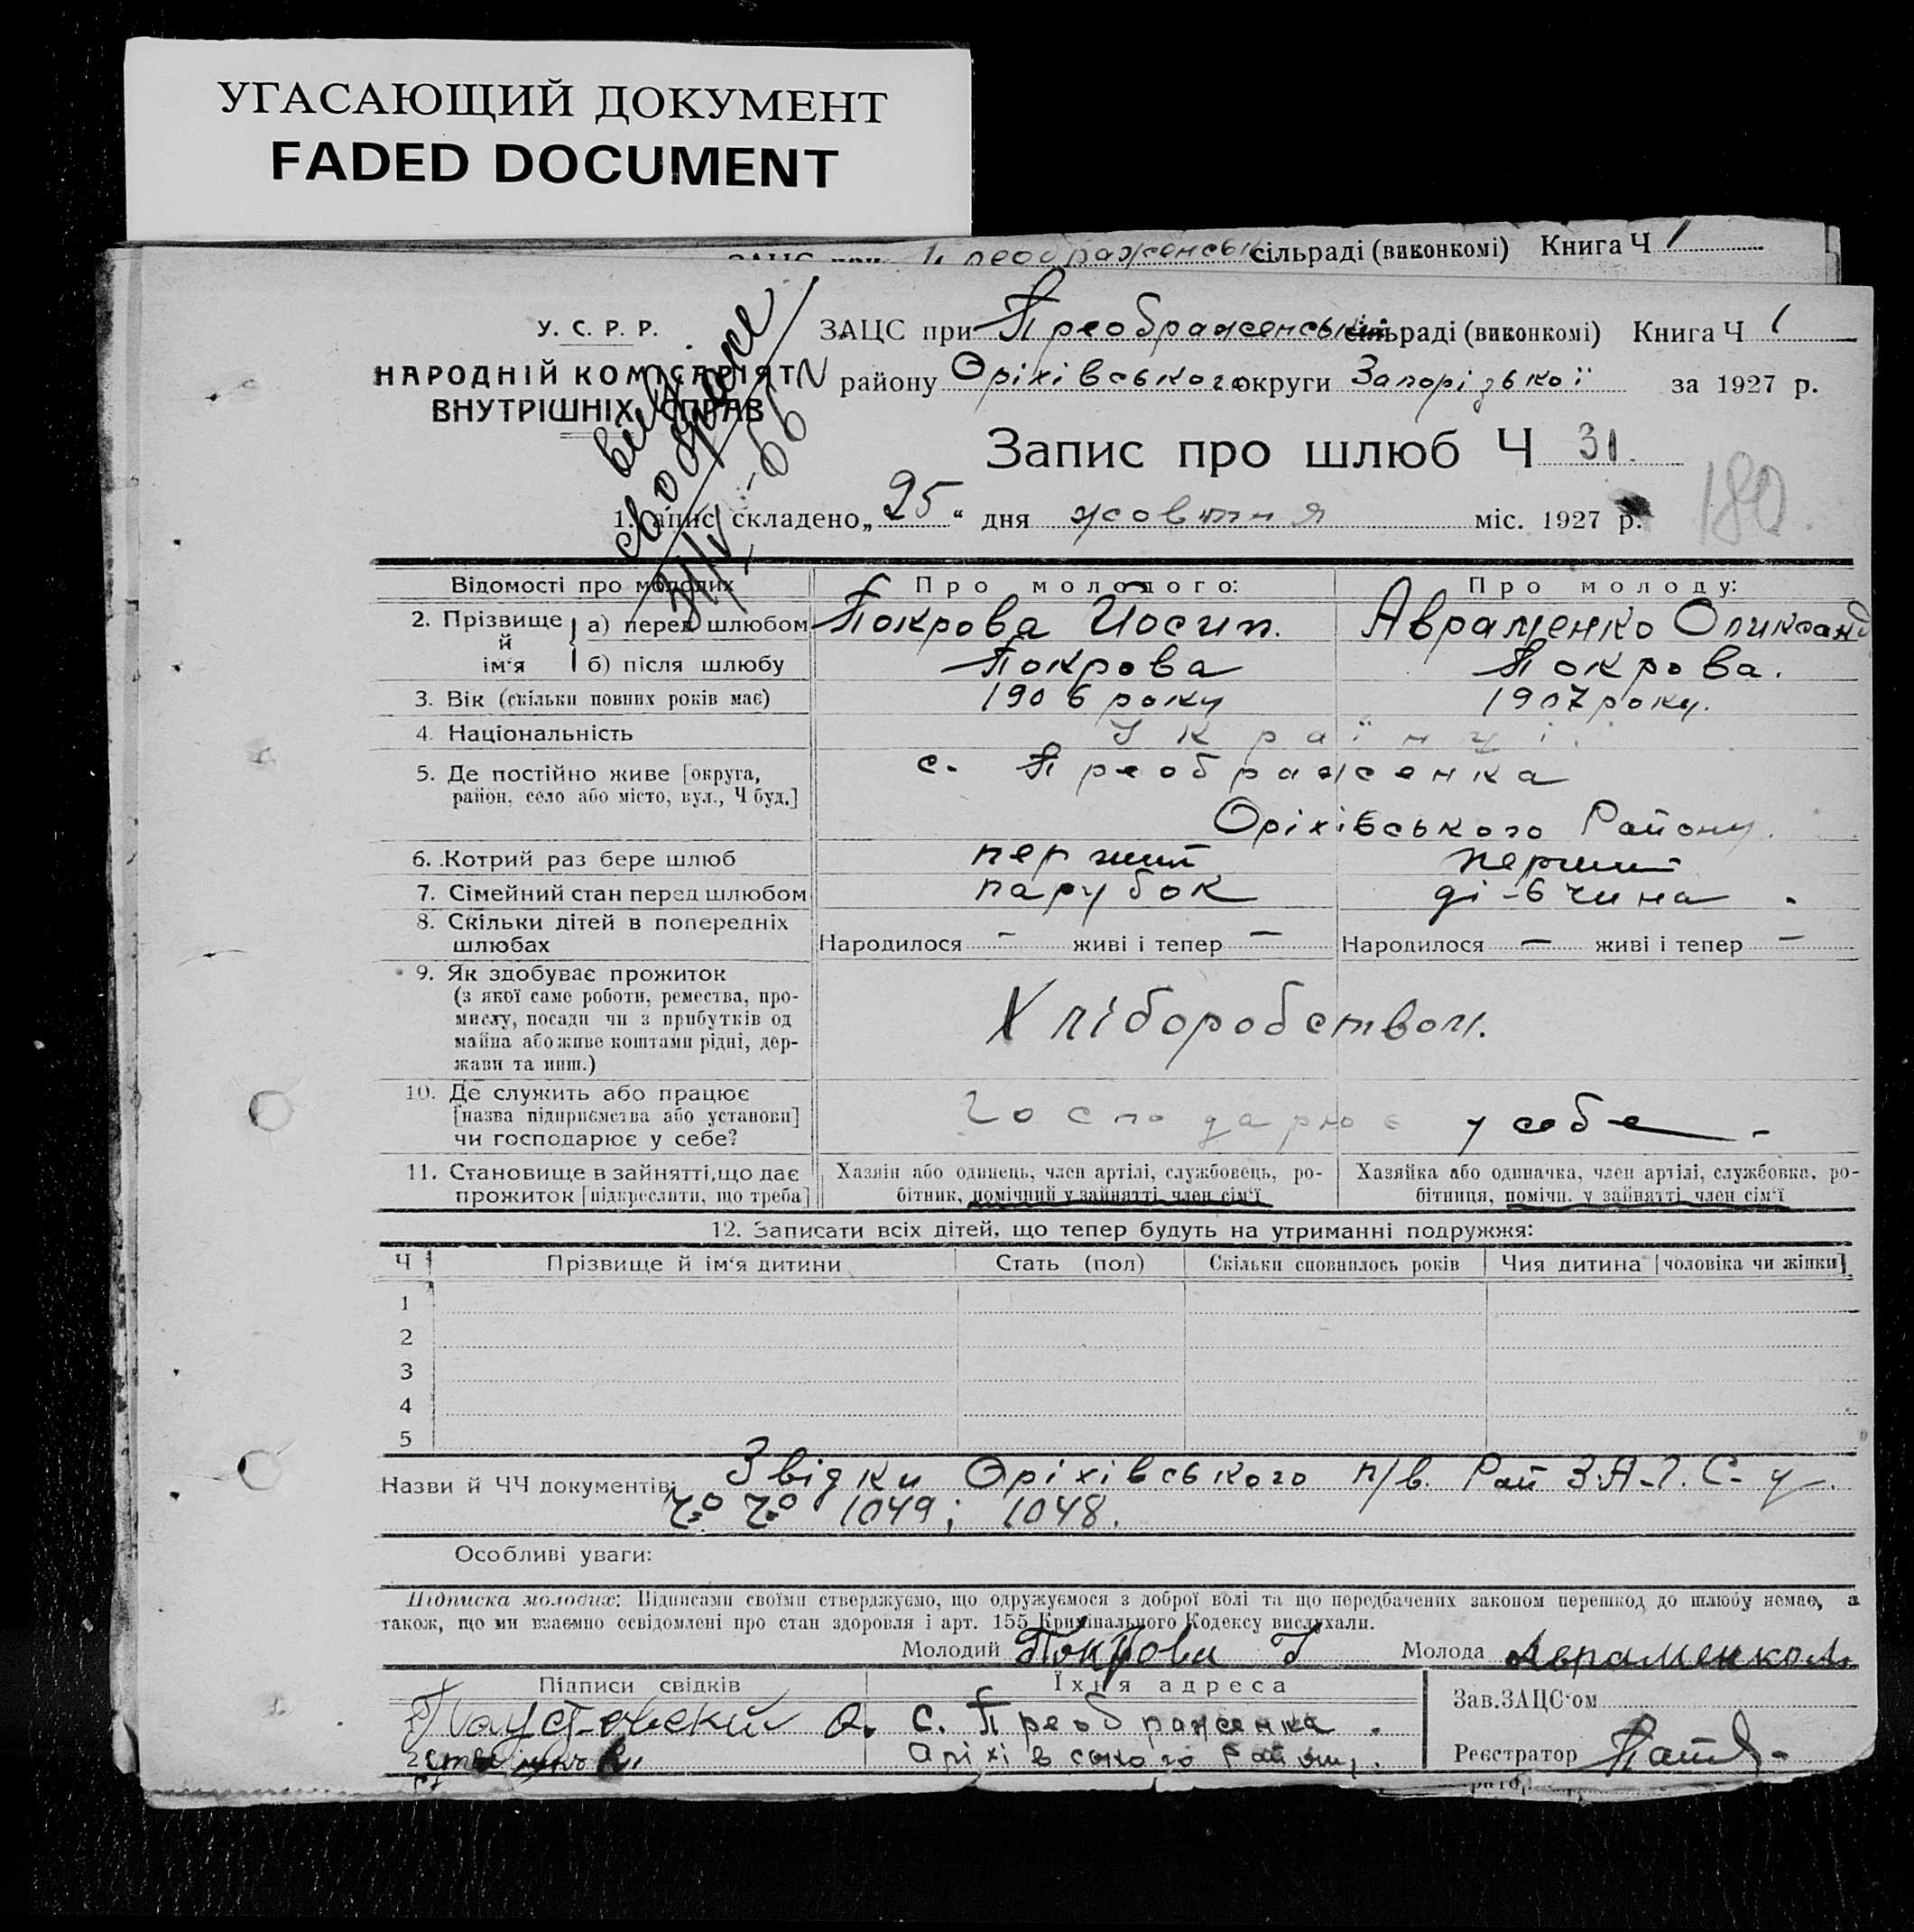 УГАСАЮЩИЙ ДОКУМЕНТ
FADED DOCUMENT
сільраді (виконкомі) Книга Ч 1
У. С. Р. Р.
НАРОДНІЙ КОМІСАРІЯТ
ВНУТРІШНІХ СПРАВ
ЗАЦС при Преображенській сільраді (виконкомі) Книга Ч 1
району Оріхівського округи Запорізької за 1927 р.
Запис про шлюб Ч 31.
180
1. Запис складено „25“ дня жовтня міс. 1927 р.
Відомості про молодих Про молодого: Про молоду:
2. Прізвище й ім‘я
а) перед шлюбом Покрова Йосип. Авраменко Оликсанд
б) після шлюбу Покрова Покрова.
3. Вік (скільки повних років має) 1906 року 1907 року.
4. Національність Українці.
5. Де постійно живе [округа, район, село або місто, вул., Ч буд.] с. Преображенка
Оріхівського Району.
6. Котрий раз бере шлюб перший перший
7. Сімейний стан перед шлюбом парубок ді-вчина
8. Скільки дітей в попередніх шлюбах Народилося — живі і тепер — Народилося — живі і тепер —
9. Як здобуває прожиток
(з якої саме роботи, ремества, про-
мислу, посади чи з прибутків од
майна або живе коштами рідні, дер-
жави та инш.)
Хліборобством.
10. Де служить або працює
[назва підприємства або установи]
чи господарює у себе?
Господарює у себе
11. Становище в зайнятті, що дає
прожиток [підкреслити, що треба]
Хазяїн або одинець, член артілі, службовець, ро-
бітник, помічний у зайнятті член сім‘ї
Хазяйка або одиначка, член артілі, службовка, ро-
бітниця, помічн. у зайнятті член сім‘ї
12. Записати всіх дітей, що тепер будуть на утриманні подружжя:
Ч Прізвище й ім‘я дитини Стать (пол) Скільки сповнилось років Чия дитина [чоловіка чи жінки]
1
2
3
4
5
Назви й ЧЧ документів: Звідки Оріхівського п/в. Рай З.А.Г.С-у.
1049; 1048.
Особливі уваги:
Підписка молодих: Підписами своїми стверджуємо, що одружуємося з доброї волі та що передбачених законом перешкод до шлюбу немає, а
також, що ми взаємно освідомлені про стан здоровля і арт. 155 Кримінального Кодексу вислухали.
Молодий Покрова Молода Авраменко
Підписи свідків Їхня адреса Зав. ЗАЦС‘ом
с. Преображенка.
2 Оріхівського Району. Реєстратор